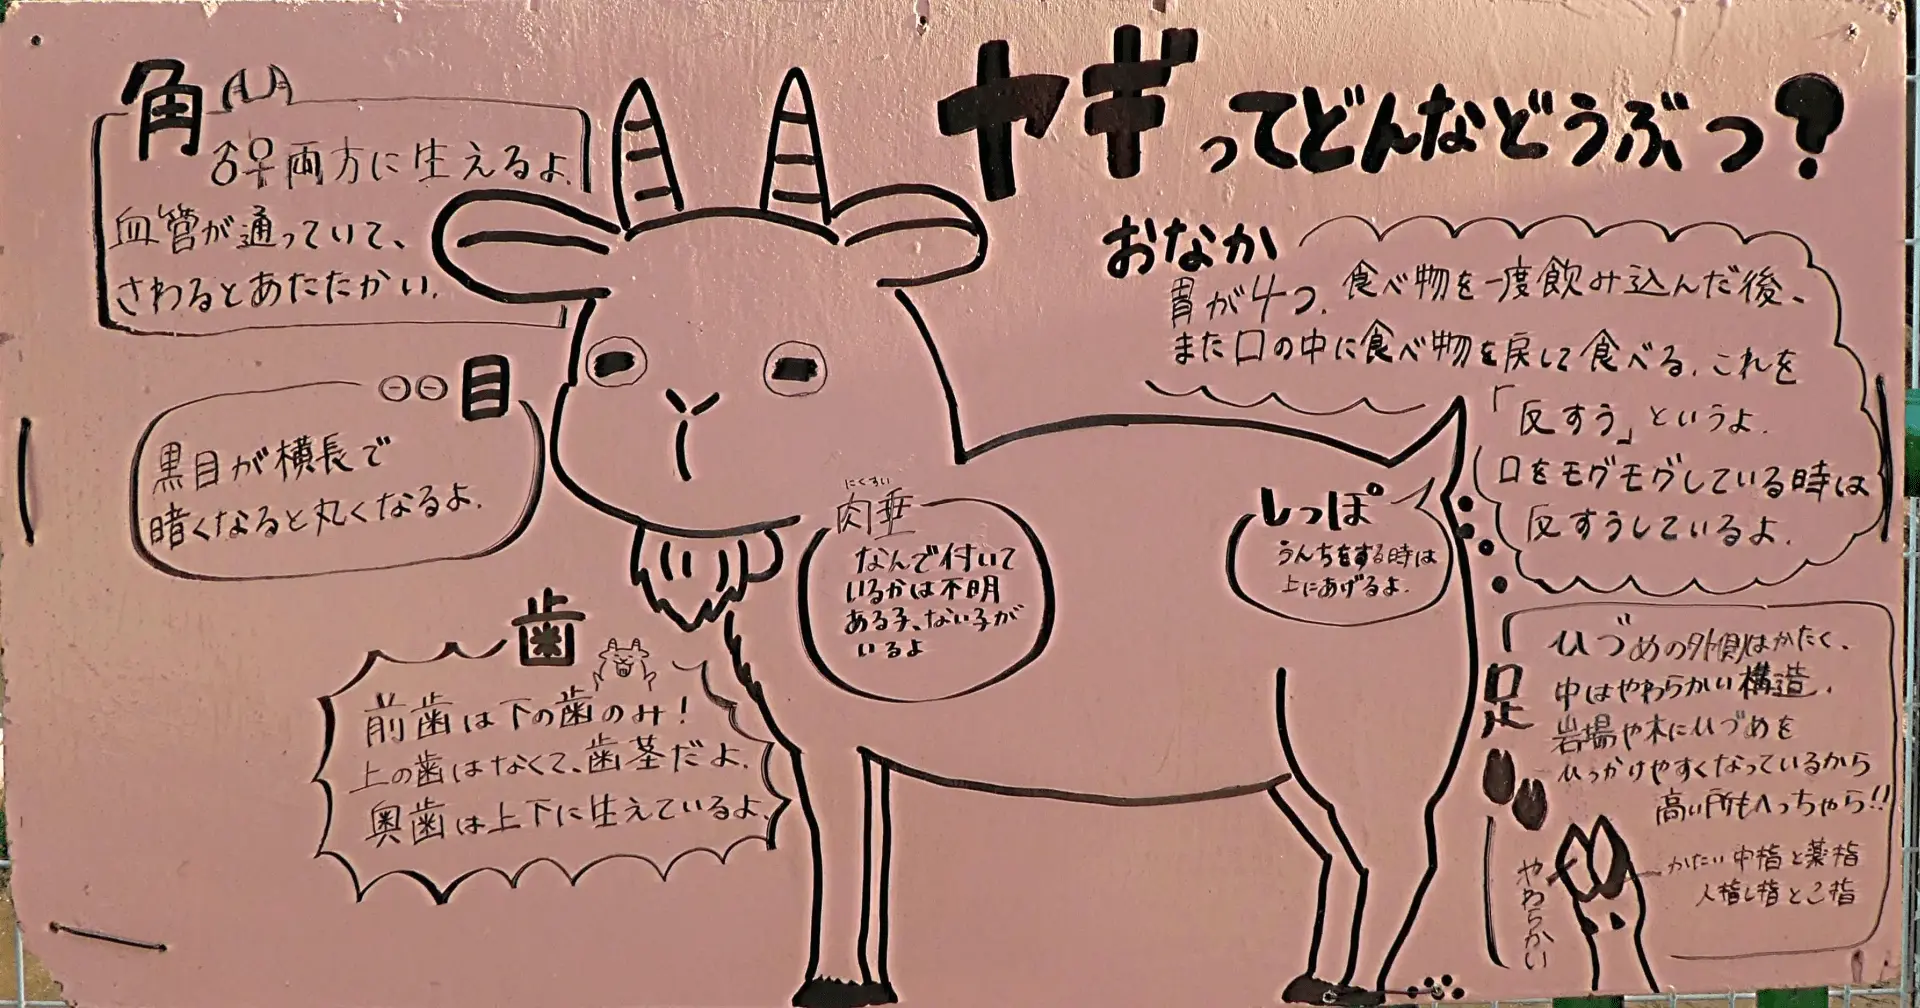 ヤギってどんなどうぶつ?
角
♂♀両方に生えるよ.
血管が通っていて、
さわるとあたたかい.
目
黒目が横長で
暗くなると丸くなるよ.
歯
前歯は下の歯のみ!
上の歯はなくて、歯茎だよ.
奥歯は上下に生えているよ.
にくすい
肉垂
なんで付いて
いるかは不明
ある子、ない子が
いるよ
おなか
胃が4つ. 食べ物を一度飲み込んだ後、
また口の中に食べ物を戻して食べる. これを
「反すう」というよ.
口をモグモグしている時は
反すうしているよ.
しっぽ
うんちをする時は
上にあげるよ.
足
ひづめの外側はかたく、
中はやわらかい構造.
岩場や木にひづめを
ひっかけやすくなっているから
高い所もへっちゃら!!
やわらかい
かたい 中指と薬指
人指し指と